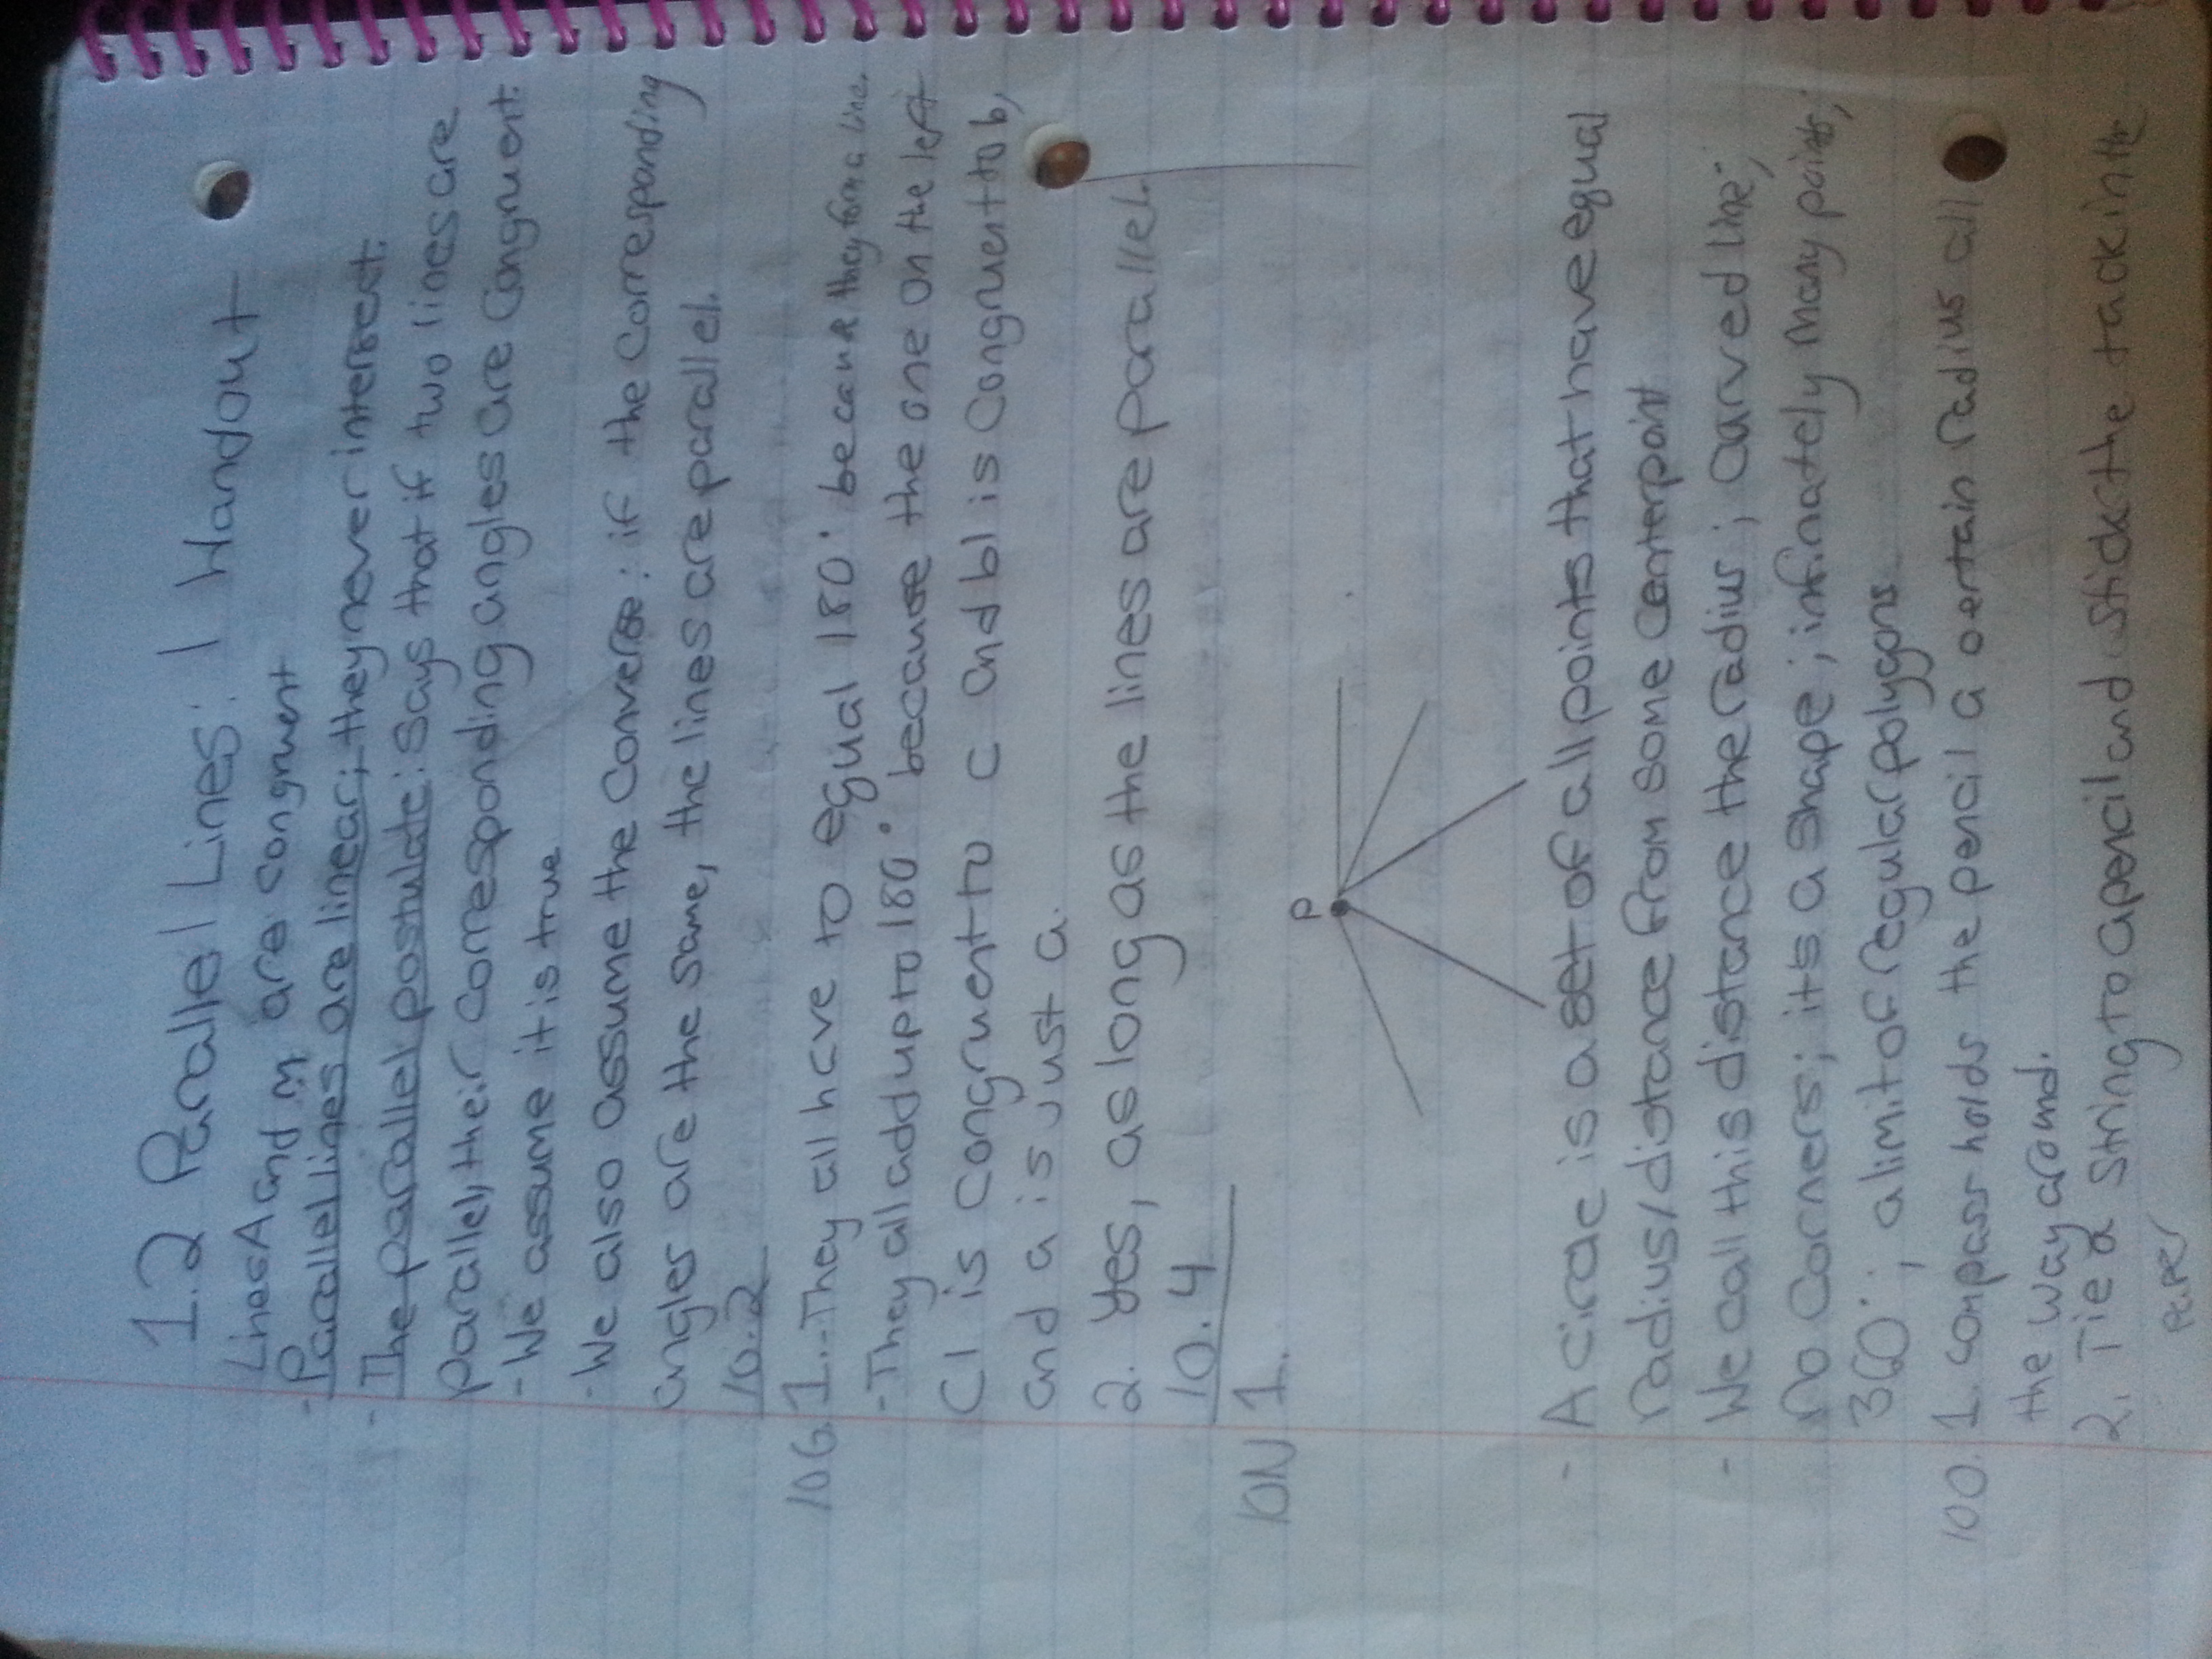 1.2 Parallel Lines: 1 Handout
Lines A and m are congruent
- Parallel lines are linear; they never intersect.
- The parallel postulate: says that if two lines are
parallel, their corresponding angles are congruent.
- We assume it is true
- We also assume the converse: if the corresponding
angles are the same, the lines are parallel.
10.2
10G.1.-They all have to equal 180° because they form a line.
- They all add up to 180° because the one on the left
C1 is congruent to c and b1 is congruent to b,
and a is just a.
2. Yes, as long as the lines are parallel.
10.4
10N 1.
P
- A circle is a set of all points that have equal
radius/distance from some centerpoint
- We call this distance the radius; curved line;
no corners; its a shape; infinately many points;
360°; a limit of regular polygons
10O. 1. compass holds the pencil a certain radius all
the way around.
2. Tie a string to a pencil and stick the tack in the
paper